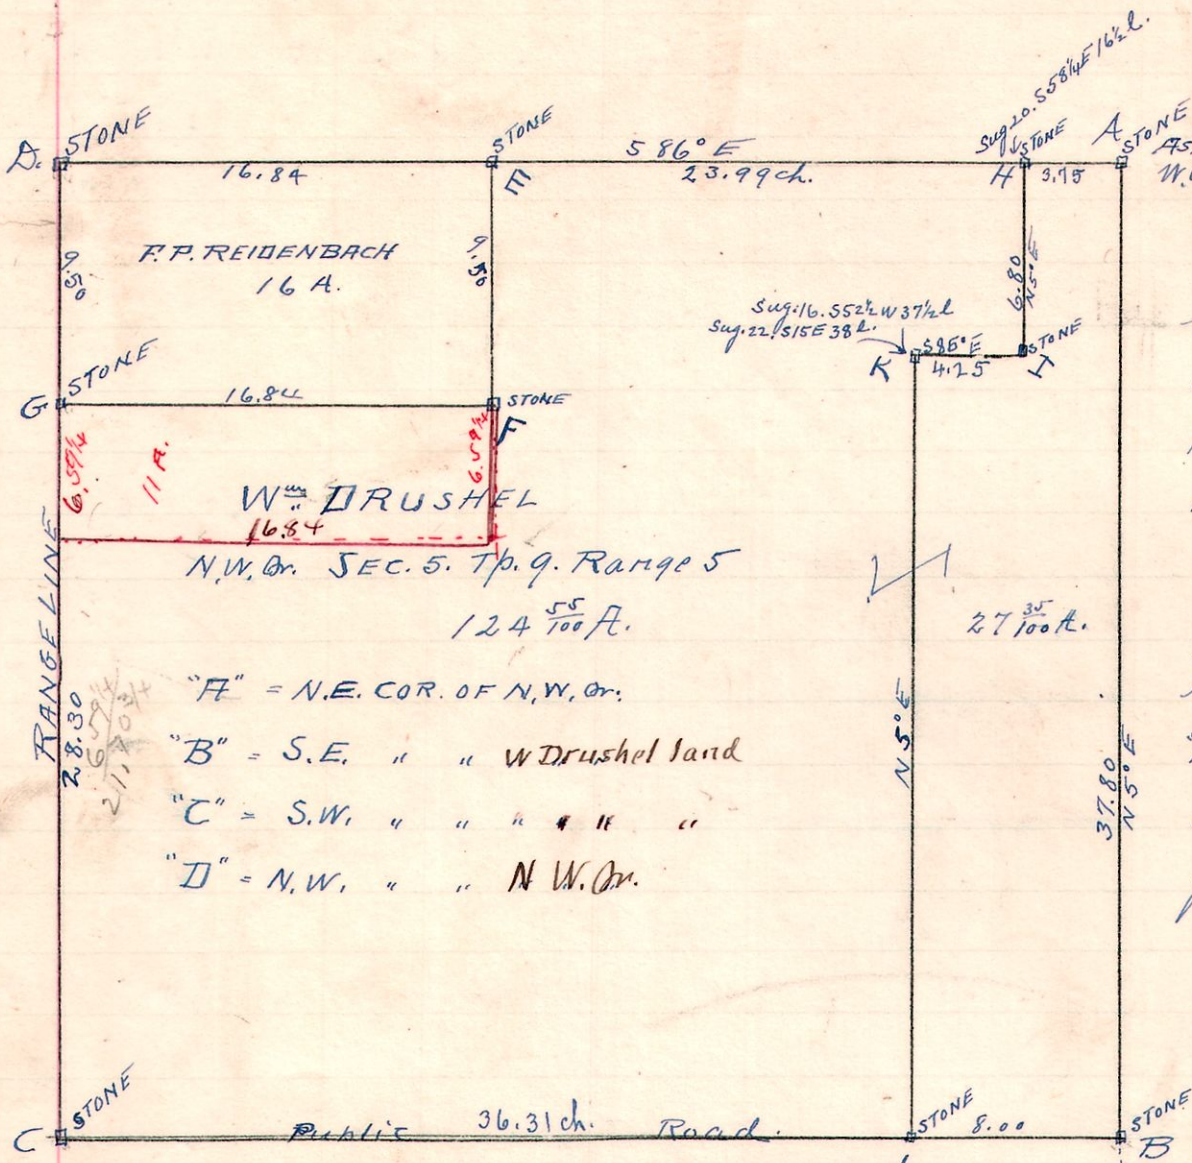 Sug 20. S58¼E 16½ l.
D. STONE
STONE
S 86° E
STONE
A STONE
16.84
E
23.99 ch.
H
3.75
9.50
F. P. REIDENBACH
16 A.
9.50
6.80
N 5° E
Sug. 16. S52½ W 37½ l
Sug. 22. S15E 38 l.
K
S 85° E
4.25
STONE
I
G STONE
16.84
STONE
F
6.59¼
11 A.
6.59¼
Wm DRUSHEL
16.84
N.W. Qr. SEC. 5. Tp. 9. Range 5
124 55/100 A.
27 35/100 A.
RANGE LINE
28.30
6 59¼
21,70¾
"A" = N.E. COR. OF N.W. Qr.
"B" = S.E. " " W Drushel land
"C" = S.W. " " " " " "
"D" = N.W. " " N W. Qr.
N 5° E
37.80
N 5° E
C STONE
Public 36.31 ch. Road
STONE
8.00
STONE
B